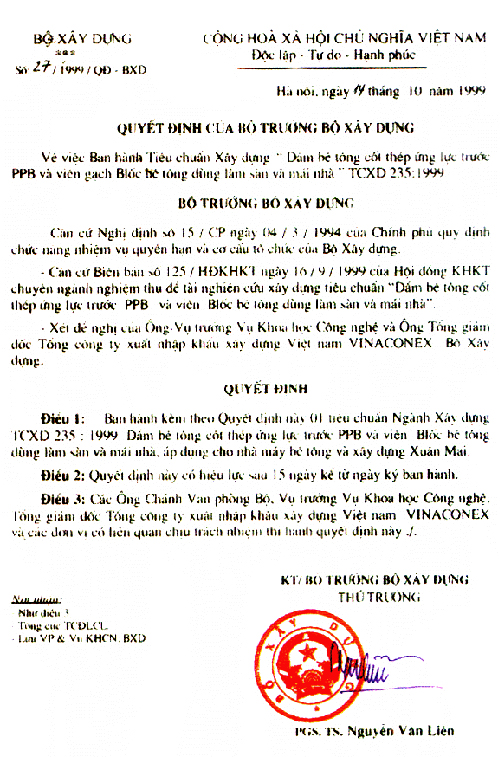 BỘ XÂY DỰNG
CỘNG HOÀ XÃ HỘI CHỦ NGHĨA VIỆT NAM
***
Độc lập - Tự do - Hạnh phúc
Số 27 / 1999 / QĐ - BXD
Hà nội, ngày 14 tháng 10 năm 1999
QUYẾT ĐỊNH CỦA BỘ TRƯỞNG BỘ XÂY DỰNG
Về việc Ban hành Tiêu chuẩn Xây dựng " Dầm bê tông cốt thép ứng lực trước
PPB và viên gạch Blốc bê tông dùng làm sàn và mái nhà " TCXD 235:1999
BỘ TRƯỞNG BỘ XÂY DỰNG
Căn cứ Nghị định số 15 / CP ngày 04 / 3 / 1994 của Chính phủ quy định
chức năng nhiệm vụ quyền hạn và cơ cấu tổ chức của Bộ Xây dựng.
- Căn cứ Biên bản số 125 / HĐKHKT ngày 16 / 9 / 1999 của Hội đồng KHKT
chuyên ngành nghiệm thu đề tài nghiên cứu xây dựng tiêu chuẩn "Dầm bê tông cốt
thép ứng lực trước PPB và viên Blốc bê tông dùng làm sàn và mái nhà".
- Xét đề nghị của Ông Vụ trưởng Vụ Khoa học Công nghệ và Ông Tổng giám
đốc Tổng công ty xuất nhập khẩu xây dựng Việt nam VINACONEX Bộ Xây
dựng.
QUYẾT ĐỊNH
Điều 1: Ban hành kèm theo Quyết định này 01 tiêu chuẩn Ngành Xây dựng
TCXD 235 : 1999 Dầm bê tông cốt thép ứng lực trước PPB và viên Blốc bê tông
dùng làm sàn và mái nhà, áp dụng cho nhà máy bê tông và xây dựng Xuân Mai.
Điều 2: Quyết định này có hiệu lực sau 15 ngày kể từ ngày ký ban hành.
Điều 3: Các Ông Chánh Văn phòng Bộ, Vụ trưởng Vụ Khoa học Công nghệ,
Tổng giám đốc Tổng công ty xuất nhập khẩu xây dựng Việt nam VINACONEX
và các đơn vị có liên quan chịu trách nhiệm thi hành quyết định này ./.
KT/ BỘ TRƯỞNG BỘ XÂY DỰNG
THỨ TRƯỞNG
Nơi nhận:
- Như điều 3
- Tổng cục TCĐLCL
- Lưu VP & Vụ KHCN, BXD
BỘ XÂY DỰNG
PGS. TS. Nguyễn Văn Liên